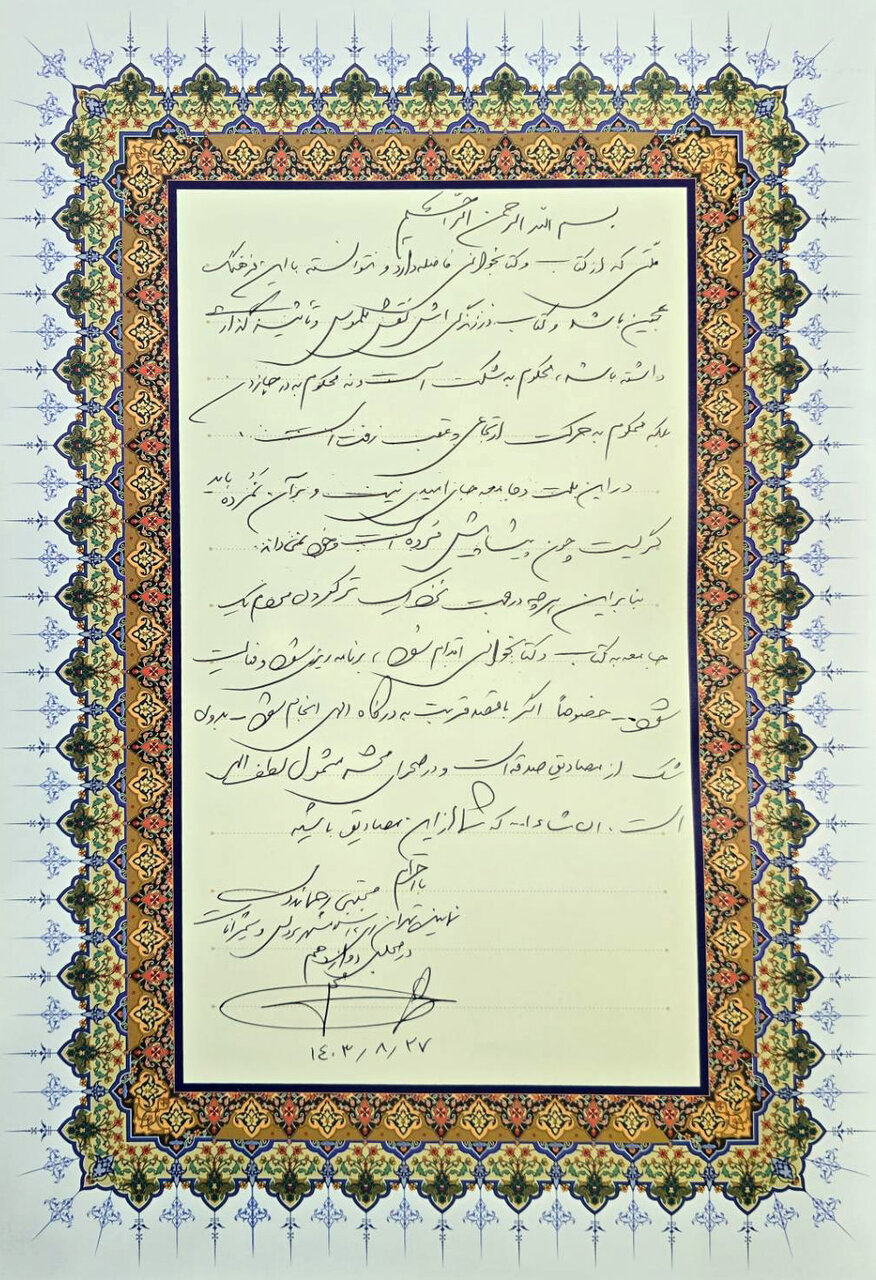 بسم الله الرحمن الرحیم
ملّتی که از کتاب و کتابخوانی فاصله دارد و نتوانسته با این فرهنگ
عجین باشد و کتاب در زندگی اش نقش ملموس و تاثیرگذاری
داشته باشد، محکوم به شکست است و نه محکوم به درجا زدن
بلکه محکوم به حرکت ارتجاعی و عقب رفت است.
در این ملت و جامعه جای امیدی نیست و بر آن نمُرده باید
گریست چون پیشاپیش مرده است و خود نمی داند.
بنابراین هر چه در جهت نزدیک تر کردن مردم یک
جامعه به کتاب و کتابخوانی اقدام شود، برنامه ریزی شود و فعالیت
شود - خصوصاً اگر با قصد قربت به درگاه الهی انجام شود - بدون
شک از مصادیق صدقه است و در صحرای محشر مشمول لطف الهی
است. ان شاءالله که شما از این مصادیق باشید
با احترام
مجتبی رحماندوست
نماینده تهران، ری، اسلامشهر، پردیس و شمیرانات
در مجلس دوازدهم
۱۴۰۳/۸/۲۷